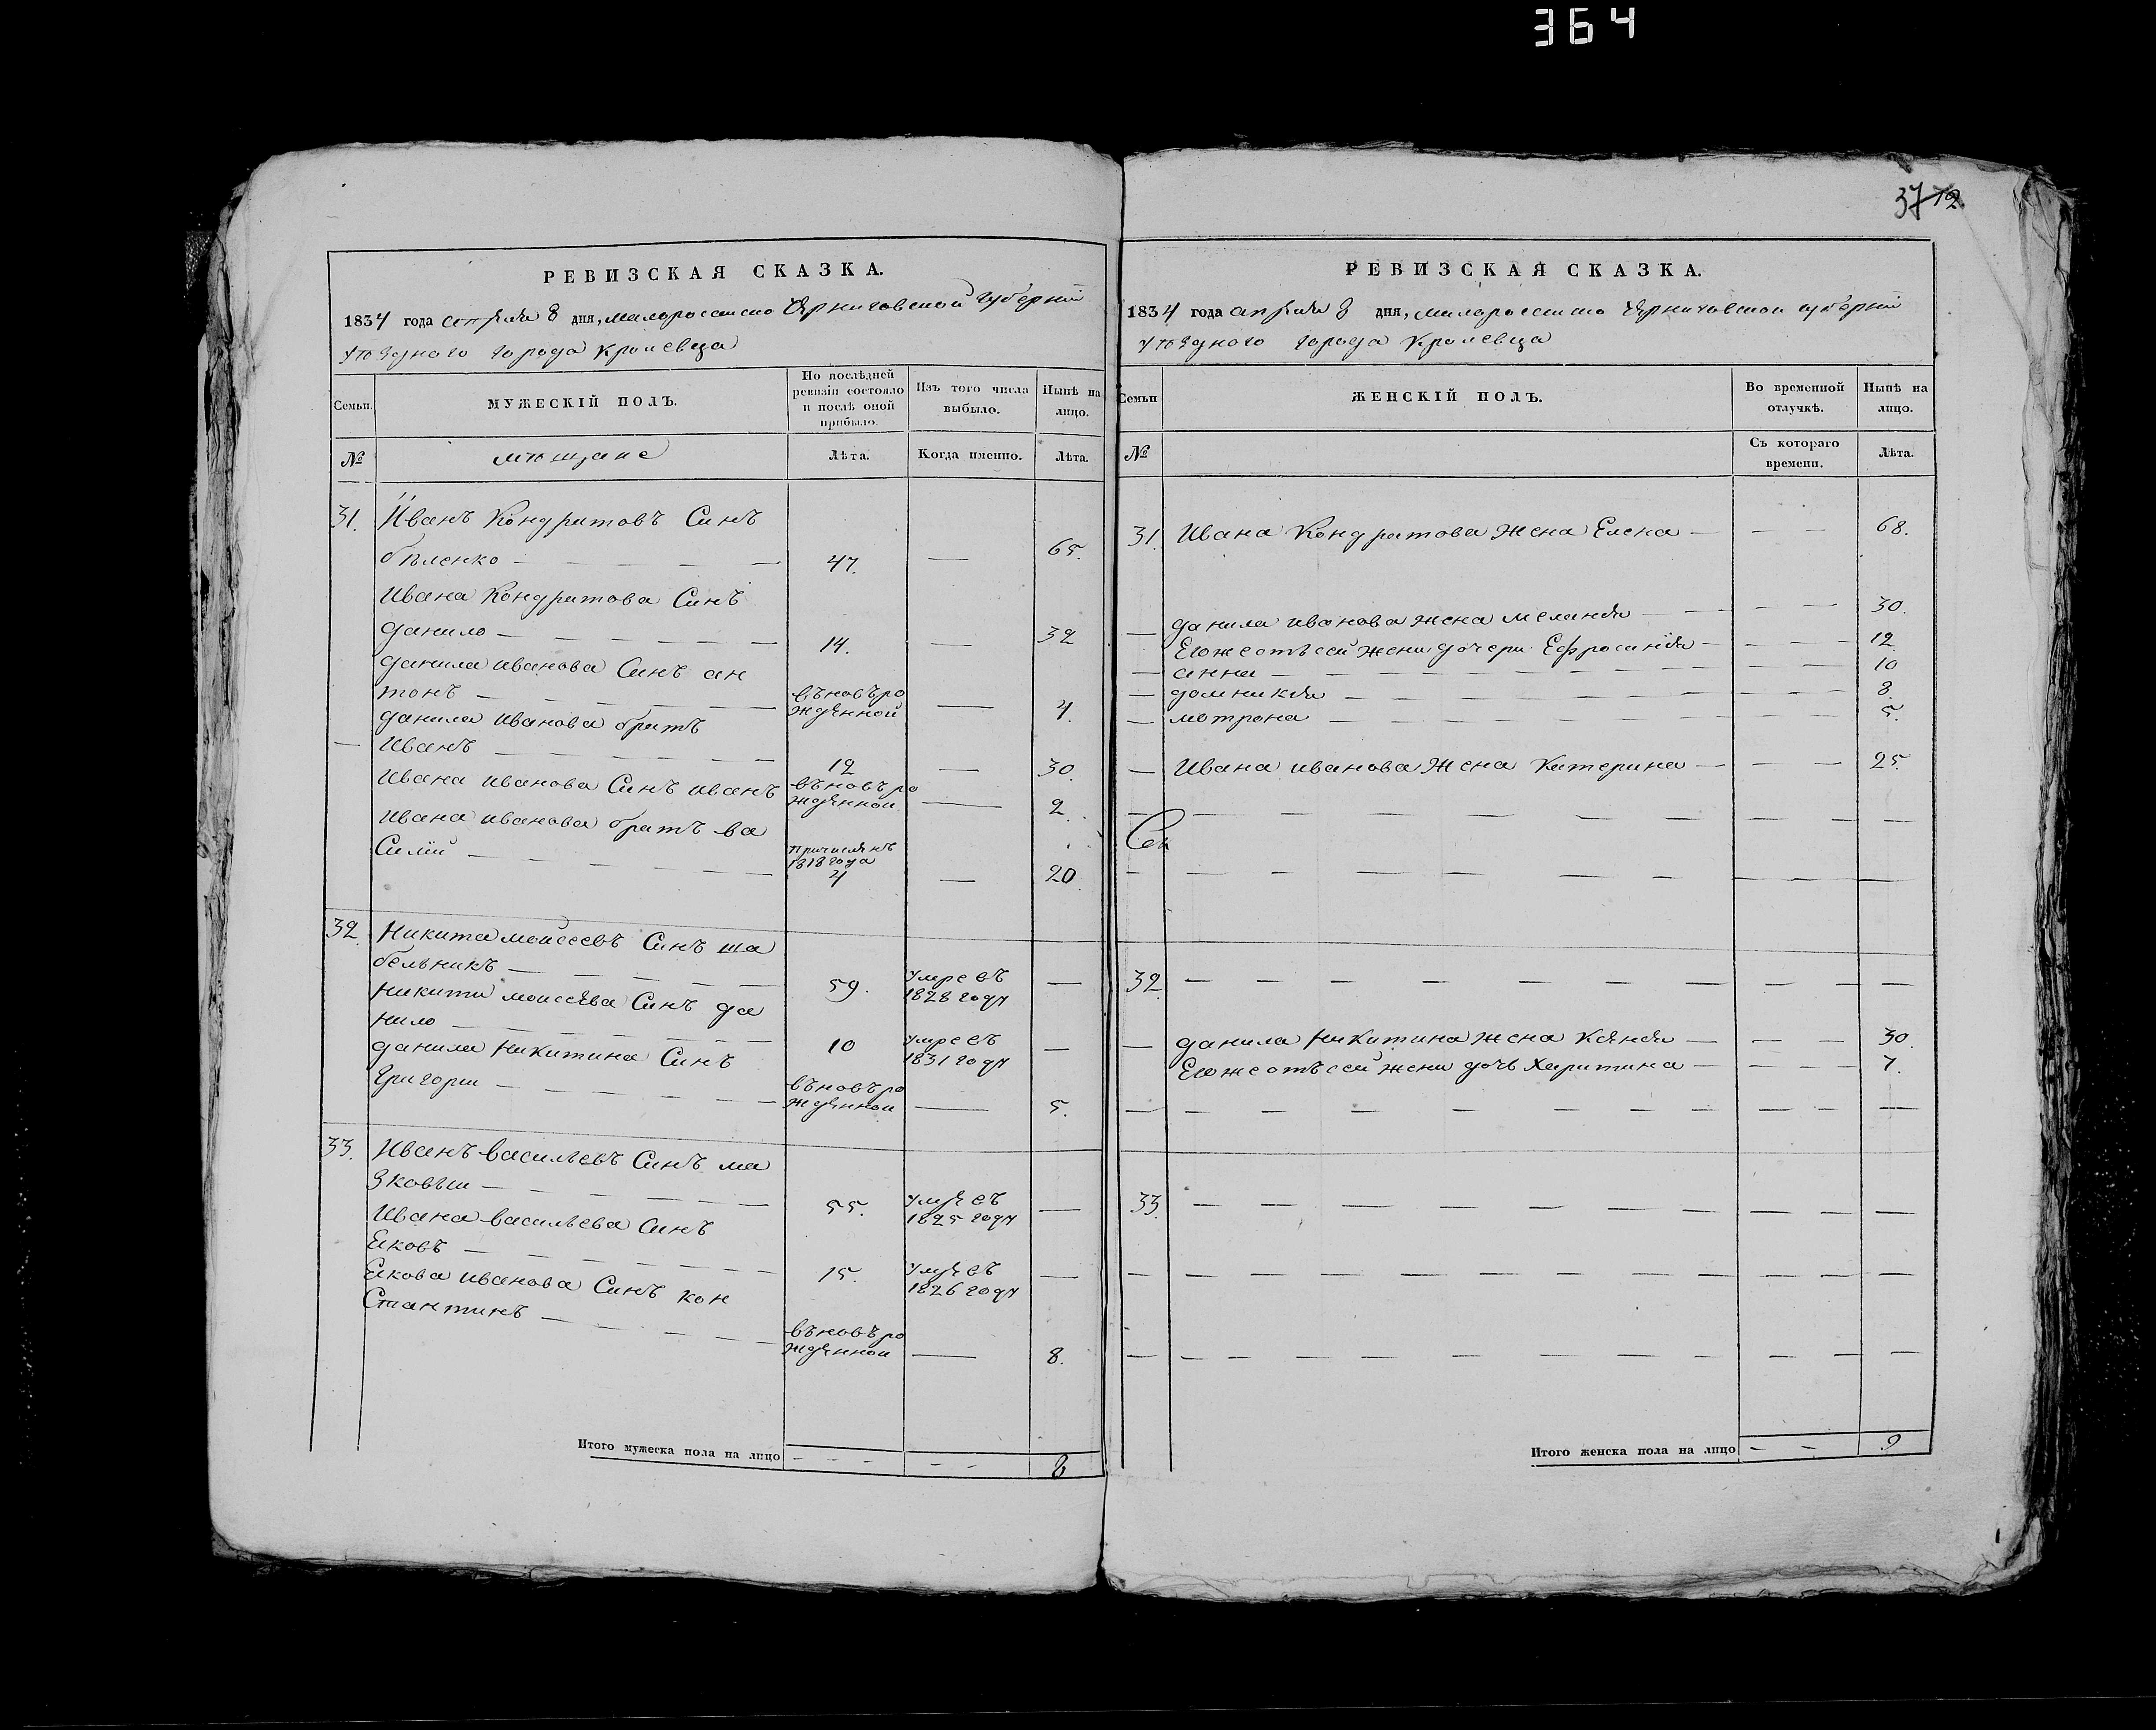 364
37 12
РЕВИЗСКАЯ СКАЗКА.
1834 года апреля 8 дня, малоросийско Черниговской губерний
уюздного города Кролевца
Семьи.
МУЖЕСКІЙ ПОЛЪ.
По послѣдней ревизіи состояло и послѣ оной прибыло.
Изъ того числа выбыло.
Нынѣ на лицо.
№
мющане
Лѣта.
Когда именно.
Лѣта.
31. Иванъ Кондратовъ Синъ
бѣленко — 47. — 65.
Ивана Кондратова Синъ
данило — 14. — 32
данила иванова Синъ ан
тонъ — въновъро
жденной — 4.
данила иванова братъ
Иванъ — 12 — 30.
Ивана иванова Синъ иванъ въновъро
жденной — 2.
Ивана иванова братъ ва
Силій — причисленъ
1818 года
4 — 20.
32. Никита моисеевъ Синъ ша
бельникъ — 59. умре въ
1828 году —
Никити моисеева Синъ да
нило — 10 умре въ
1831 году —
данила Никитина Синъ
Григории — въновъро
жденной — 5.
33. Иванъ васильевъ Синъ ма
зковъи — 55. умре въ
1825 году —
Ивана васильева Синъ
Еяковъ — 15. умре въ
1826 году —
Еякова иванова Синъ кон
Стантинъ — въновъро
жденной — 8.
Итого мужеска пола на лицо — — — — — 8
РЕВИЗСКАЯ СКАЗКА.
1834 года апреля 8 дня, малоросийско Черниговской губерний
уюздного города Кролевца
Семьи
ЖЕНСКІЙ ПОЛЪ.
Во временной отлучкѣ.
Нынѣ на лицо.
№
Съ котораго времени.
Лѣта.
31. Ивана Кондратова жена Елена — — — 68.
— данила иванова жена мелания — — — 30.
Егожеотъсей жени дочери Ефросиния — — — 12
— анна — — — 10
— домникия — — — 8.
— мотрона — — — 5.
— Ивана иванова жена Катерина — — — 25.
Сен
32. — — —
— данила Никитина жена Ксения — — — 30.
Егожеотъсей жени дочь Харитина — — — 7.
33. — — —
Итого женска пола на лицо — — 9